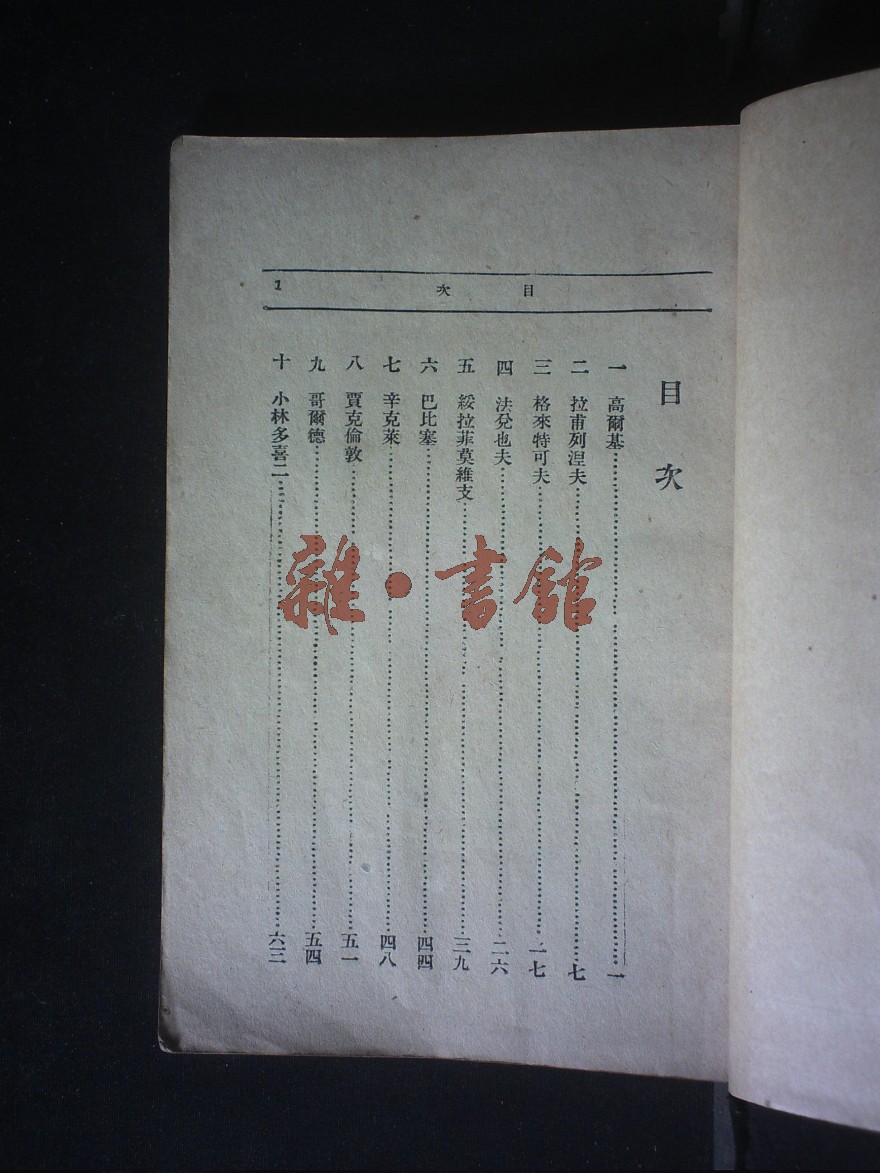 目次
1
目次
一 高爾基 一
二 拉甫列涅夫 七
三 格來特可夫 一七
四 法兌也夫 二六
五 綏拉菲莫維支 三九
六 巴比塞 四四
七 辛克萊 四八
八 賈克倫敦 五一
九 哥爾德 五四
十 小林多喜二 六三
雜·書館